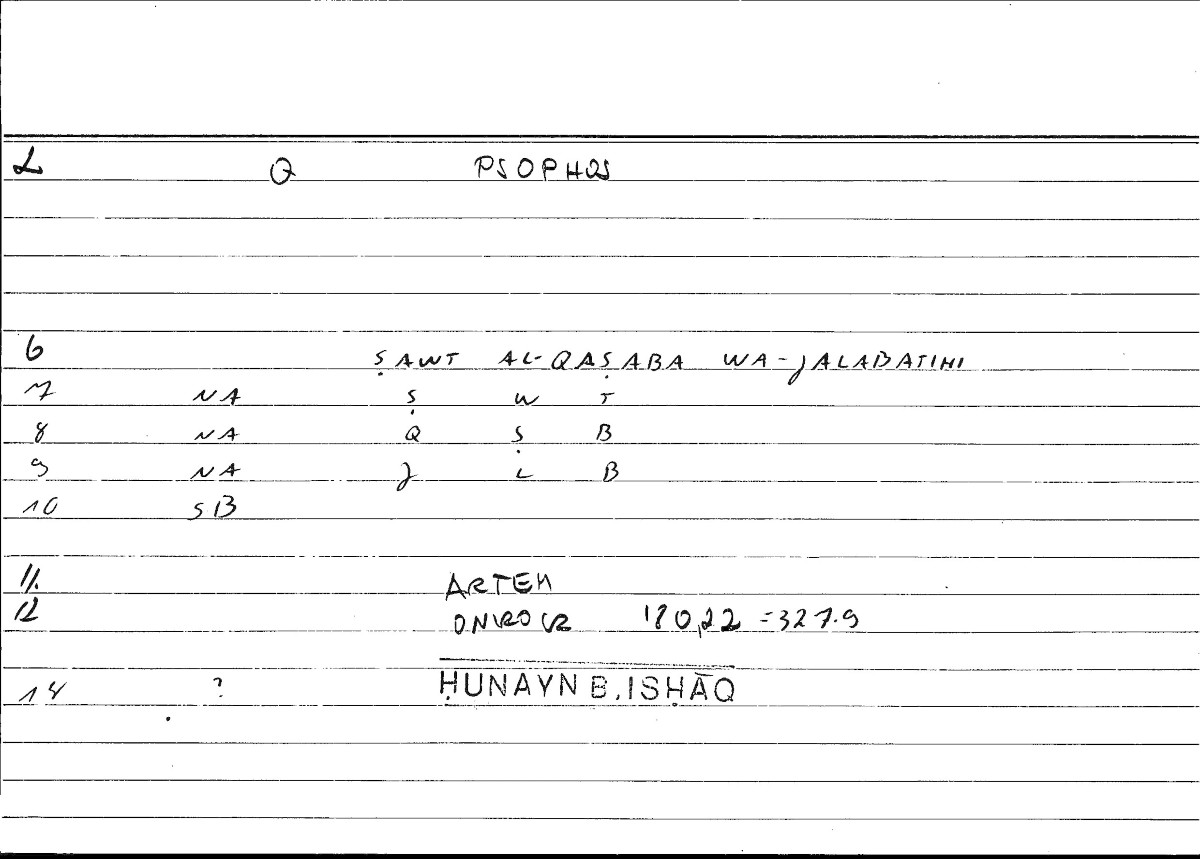 L Q PSOPHOS
6 ṢAWT AL-QAṢABA WA-JALABATIHI
7 NA Ṣ W T
8 NA Q Ṣ B
9 NA J L B
10 SB
11. ARTEM
12 ONIROCR 180,22 = 327.9
14 ? ḤUNAYN B. ISḤĀQ